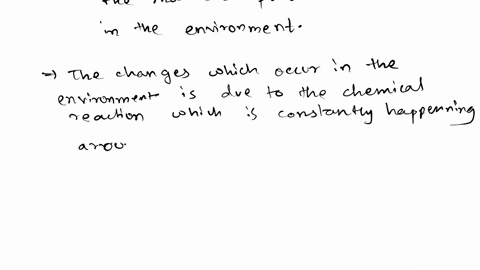 the
in the environment.
→ The changes which occur in the
environment is due to the chemical
reaction which is constantly happenning
arou